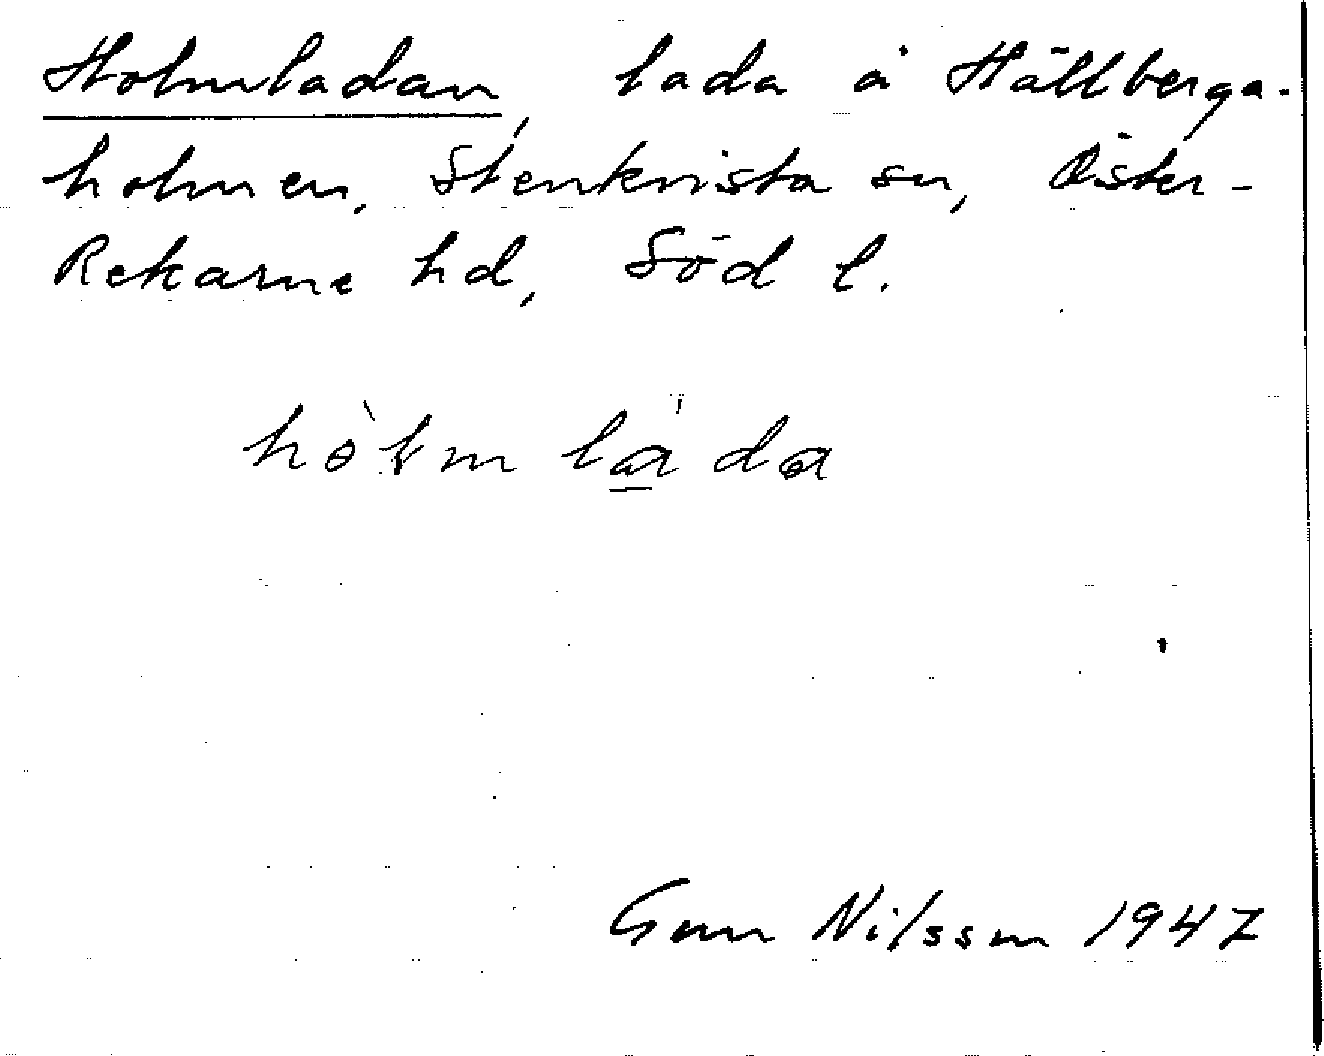 Holmladan, lada å Hällberga-
holmen, Stenkvista sn, Öster-
Rekarne hd, Söd l.
hòlmlàda
Gun Nilsson 1947